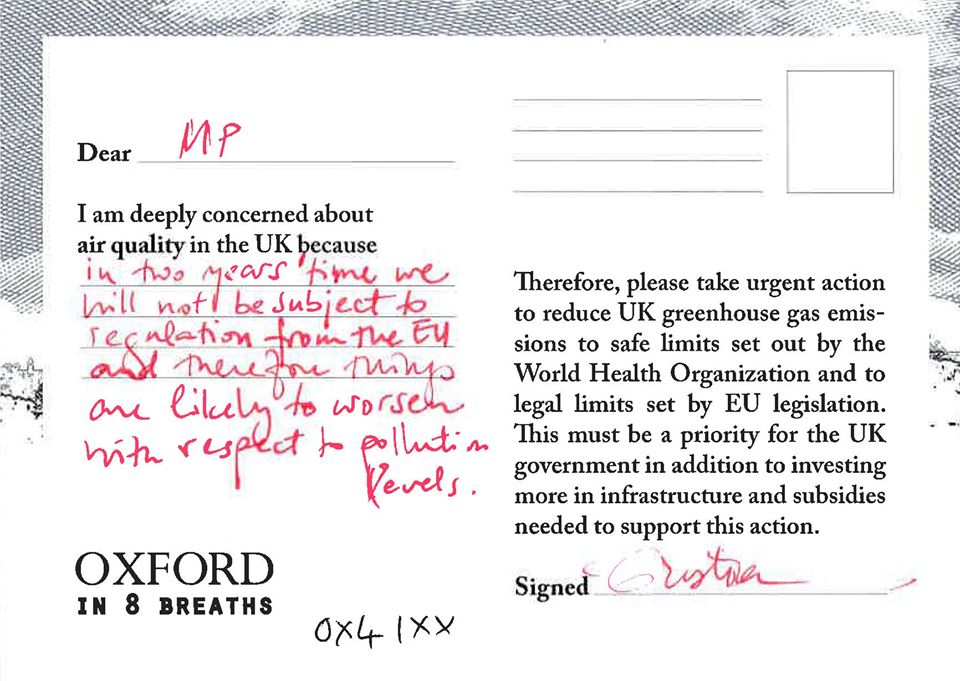 Dear MP
I am deeply concerned about
air quality in the UK because
in two years time we
will not be subject to
regulation from the EU
and therefore things
are likely to worsen
with respect to pollution
levels.
OXFORD
IN 8 BREATHS
OX4 1XX
Therefore, please take urgent action
to reduce UK greenhouse gas emis-
sions to safe limits set out by the
World Health Organization and to
legal limits set by EU legislation.
This must be a priority for the UK
government in addition to investing
more in infrastructure and subsidies
needed to support this action.
Signed